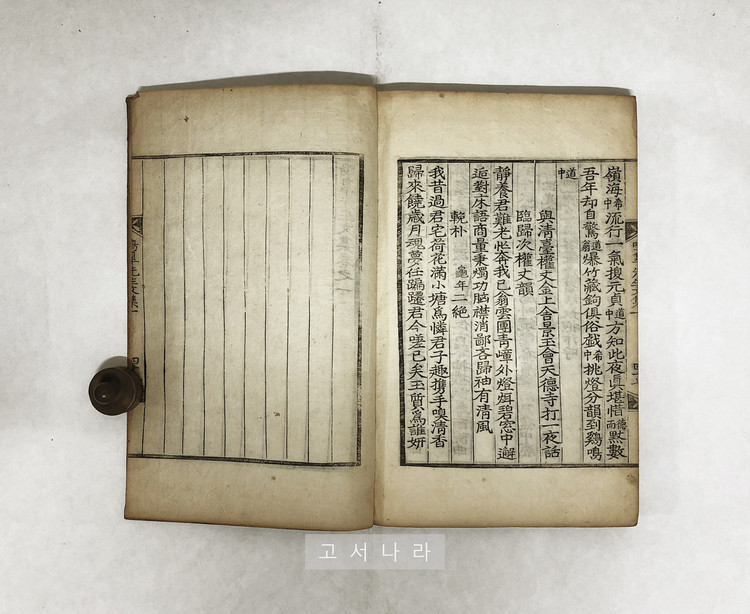 嶺海希中流行一氣搜元貞道中方知此夜眞堪惜德而黙數
吾年却自驚道翁爆竹藏鉤俱俗戱希中挑燈分韻到鷄鳴
道中
與淸臺權丈金上舍景玉會天德寺打一夜話
臨歸次權丈韻
靜養君難老忙奔我已翁雲團靑嶂外燈碧窓中邂
逅對床語商量秉燭功胸襟消鄙吝歸袖有淸風
輓朴龜年二絶
我昔過君宅荷花滿小塘爲憐君子趣携手嗅淸香
歸來饒歲月魂夢任蹁躚君今嗟已矣玉質爲誰姸
先生文集一
고서나라